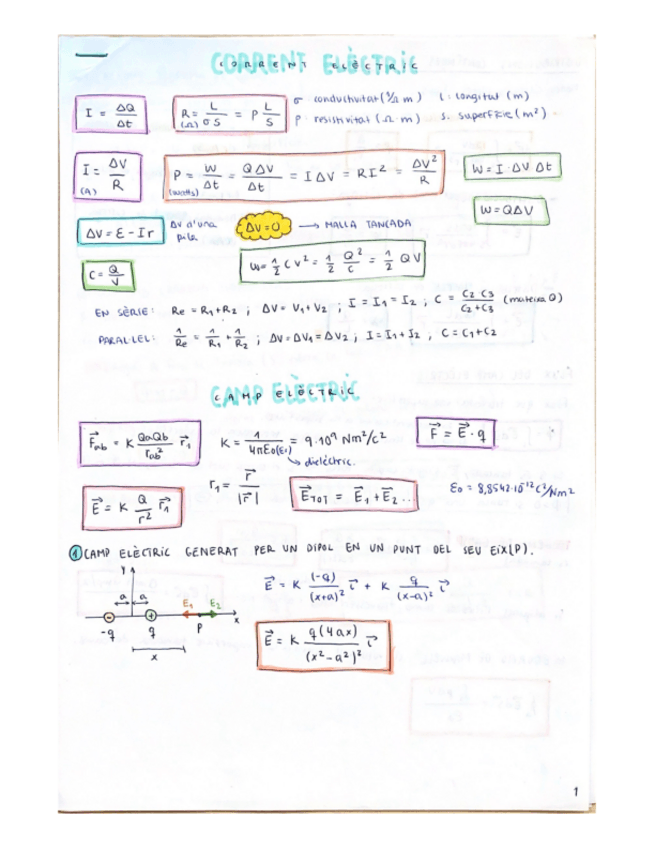 CORRENT ELÈCTRIC
I = ΔQ/Δt
R = L/(σ S) = ρ L/S
(Ω)
σ conductivitat (1/Ω m) L: longitut (m)
ρ: resistivitat (Ω m) S: superfície (m²)
I = ΔV/R
(A)
P = W/Δt = QΔV/Δt = IΔV = RI² = ΔV²/R
(watts)
W = I·ΔV Δt
W = QΔV
ΔV = ε - Ir ΔV d'una pila
ΔV=0 → MALLA TANCADA
C = Q/V
W = 1/2 CV² = 1/2 Q²/C = 1/2 QV
EN SÈRIE: Re = R1+R2 ; ΔV = V1+V2 ; I = I1 = I2 ; C = C2 C3/(C2+C3) (mateixa Q)
PARAL·LEL: 1/Re = 1/R1 + 1/R2 ; ΔV = ΔV1 = ΔV2 ; I = I1+I2 ; C = C1+C2
CAMP ELÈCTRIC
F⃗ab = K QaQb/rab² r⃗1
K = 1/(4πε0(εr)) = 9·10⁹ Nm²/C²
↳ dielèctric.
F⃗ = E⃗·q
E⃗ = K Q/r² r⃗1
r1 = r⃗/|r⃗|
E⃗TOT = E⃗1 + E⃗2 ...
ε0 = 8,8542·10⁻¹² C²/Nm²
① CAMP ELÈCTRIC GENERAT PER UN DIPOL EN UN PUNT DEL SEU EIX(P).
y
a a
E1 E2
- +
-q q P x
x
E⃗ = K (-q)/(x+a)² i⃗ + K q/(x-a)² i⃗
E⃗ = K q(4ax)/(x²-a²)² i⃗
1